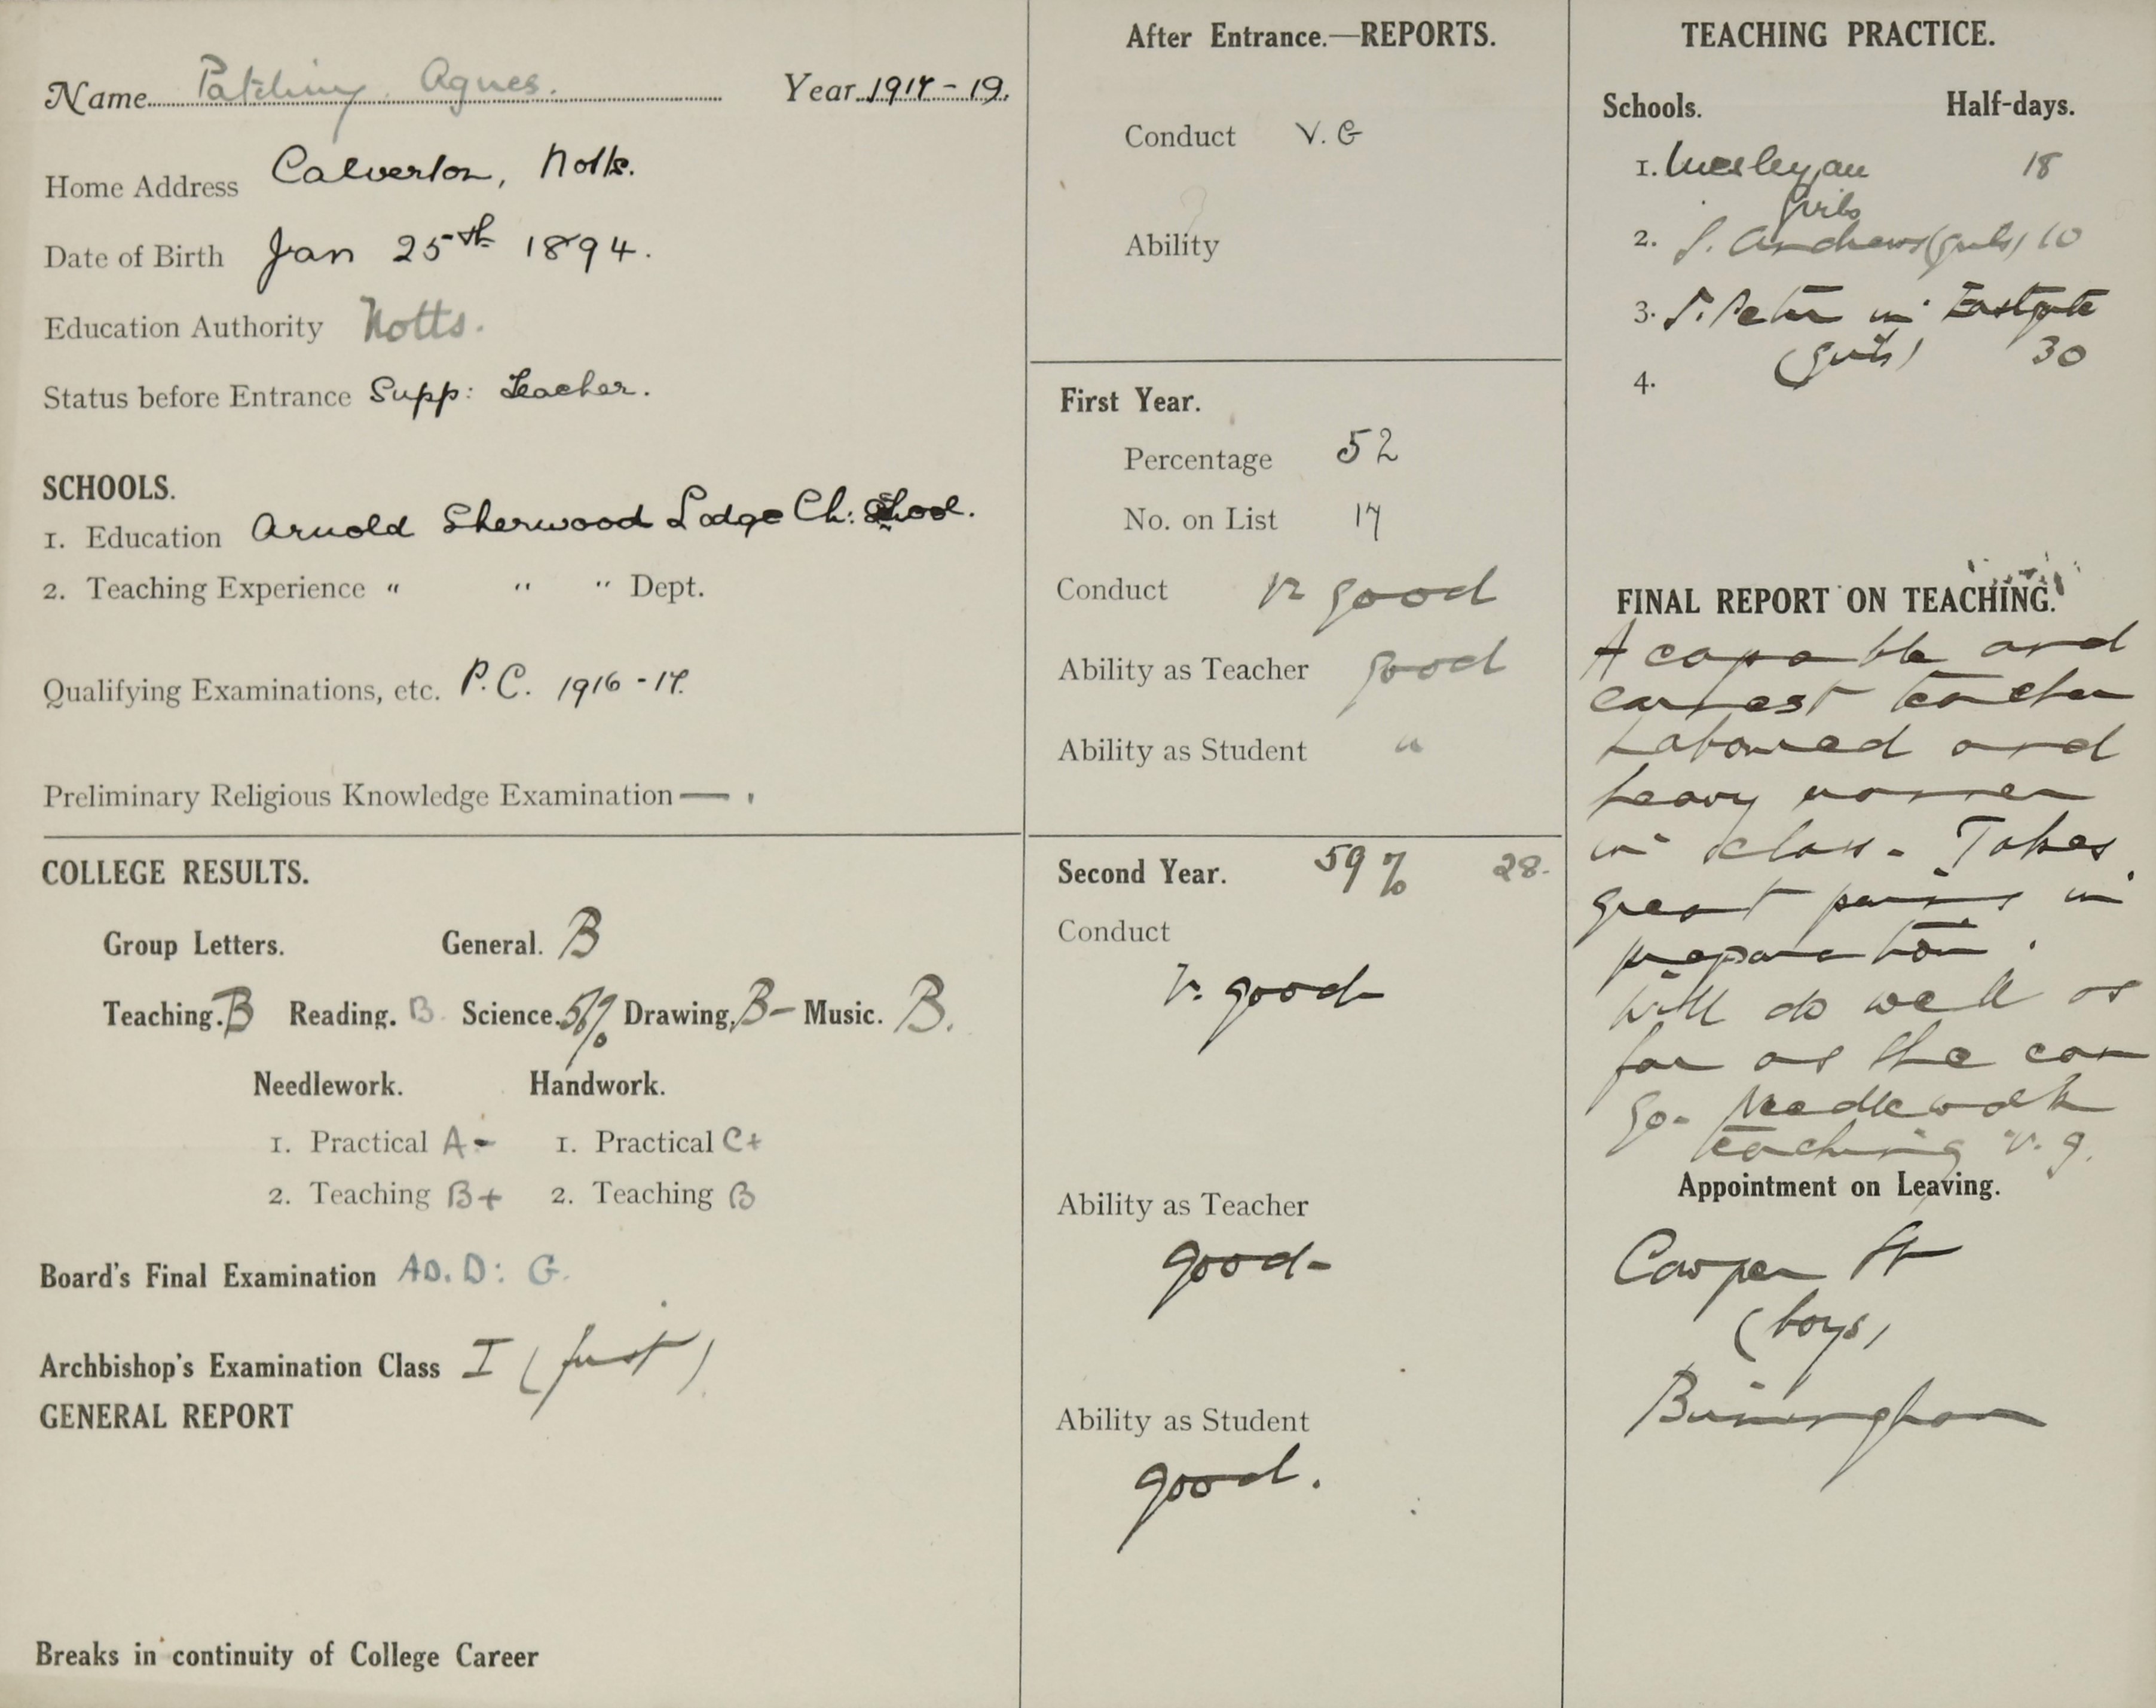 Name Patching Agnes. Year 1917-19.
Home Address Calverton, Notts.
Date of Birth Jan 25th 1894.
Education Authority Notts.
Status before Entrance Supp: Teacher.
SCHOOLS.
1. Education Arnold Sherwood Lodge Ch: School.
2. Teaching Experience " " " Dept.
Qualifying Examinations, etc. P.C. 1916-17.
Preliminary Religious Knowledge Examination — .
COLLEGE RESULTS.
Group Letters. General. B
Teaching. B Reading. B Science. % Drawing. B- Music. B.
Needlework. Handwork.
1. Practical A- 1. Practical C+
2. Teaching B+ 2. Teaching B
Board's Final Examination AD. D: G.
Archbishop's Examination Class I (just)
GENERAL REPORT
Breaks in continuity of College Career
After Entrance.—REPORTS.
Conduct V. G
Ability
First Year.
Percentage 52
No. on List 17
Conduct V. good
Ability as Teacher good
Ability as Student "
Second Year. 59 % 28.
Conduct
V. good
Ability as Teacher
good-
Ability as Student
good.
TEACHING PRACTICE.
Schools. Half-days.
1. Wesleyan 18
Girls
2. S. Andrews (girls) 10
3. S. Peter in Eastgate
(girls) 30
4.
FINAL REPORT ON TEACHING.
A capable and
earnest teacher
Laboured and
heavy manner
in class. Takes
great pains in
preparation.
Will do well as
far as she can
go. Needlework
teaching v. g.
Appointment on Leaving.
Cowper St
(boys)
Birmingham